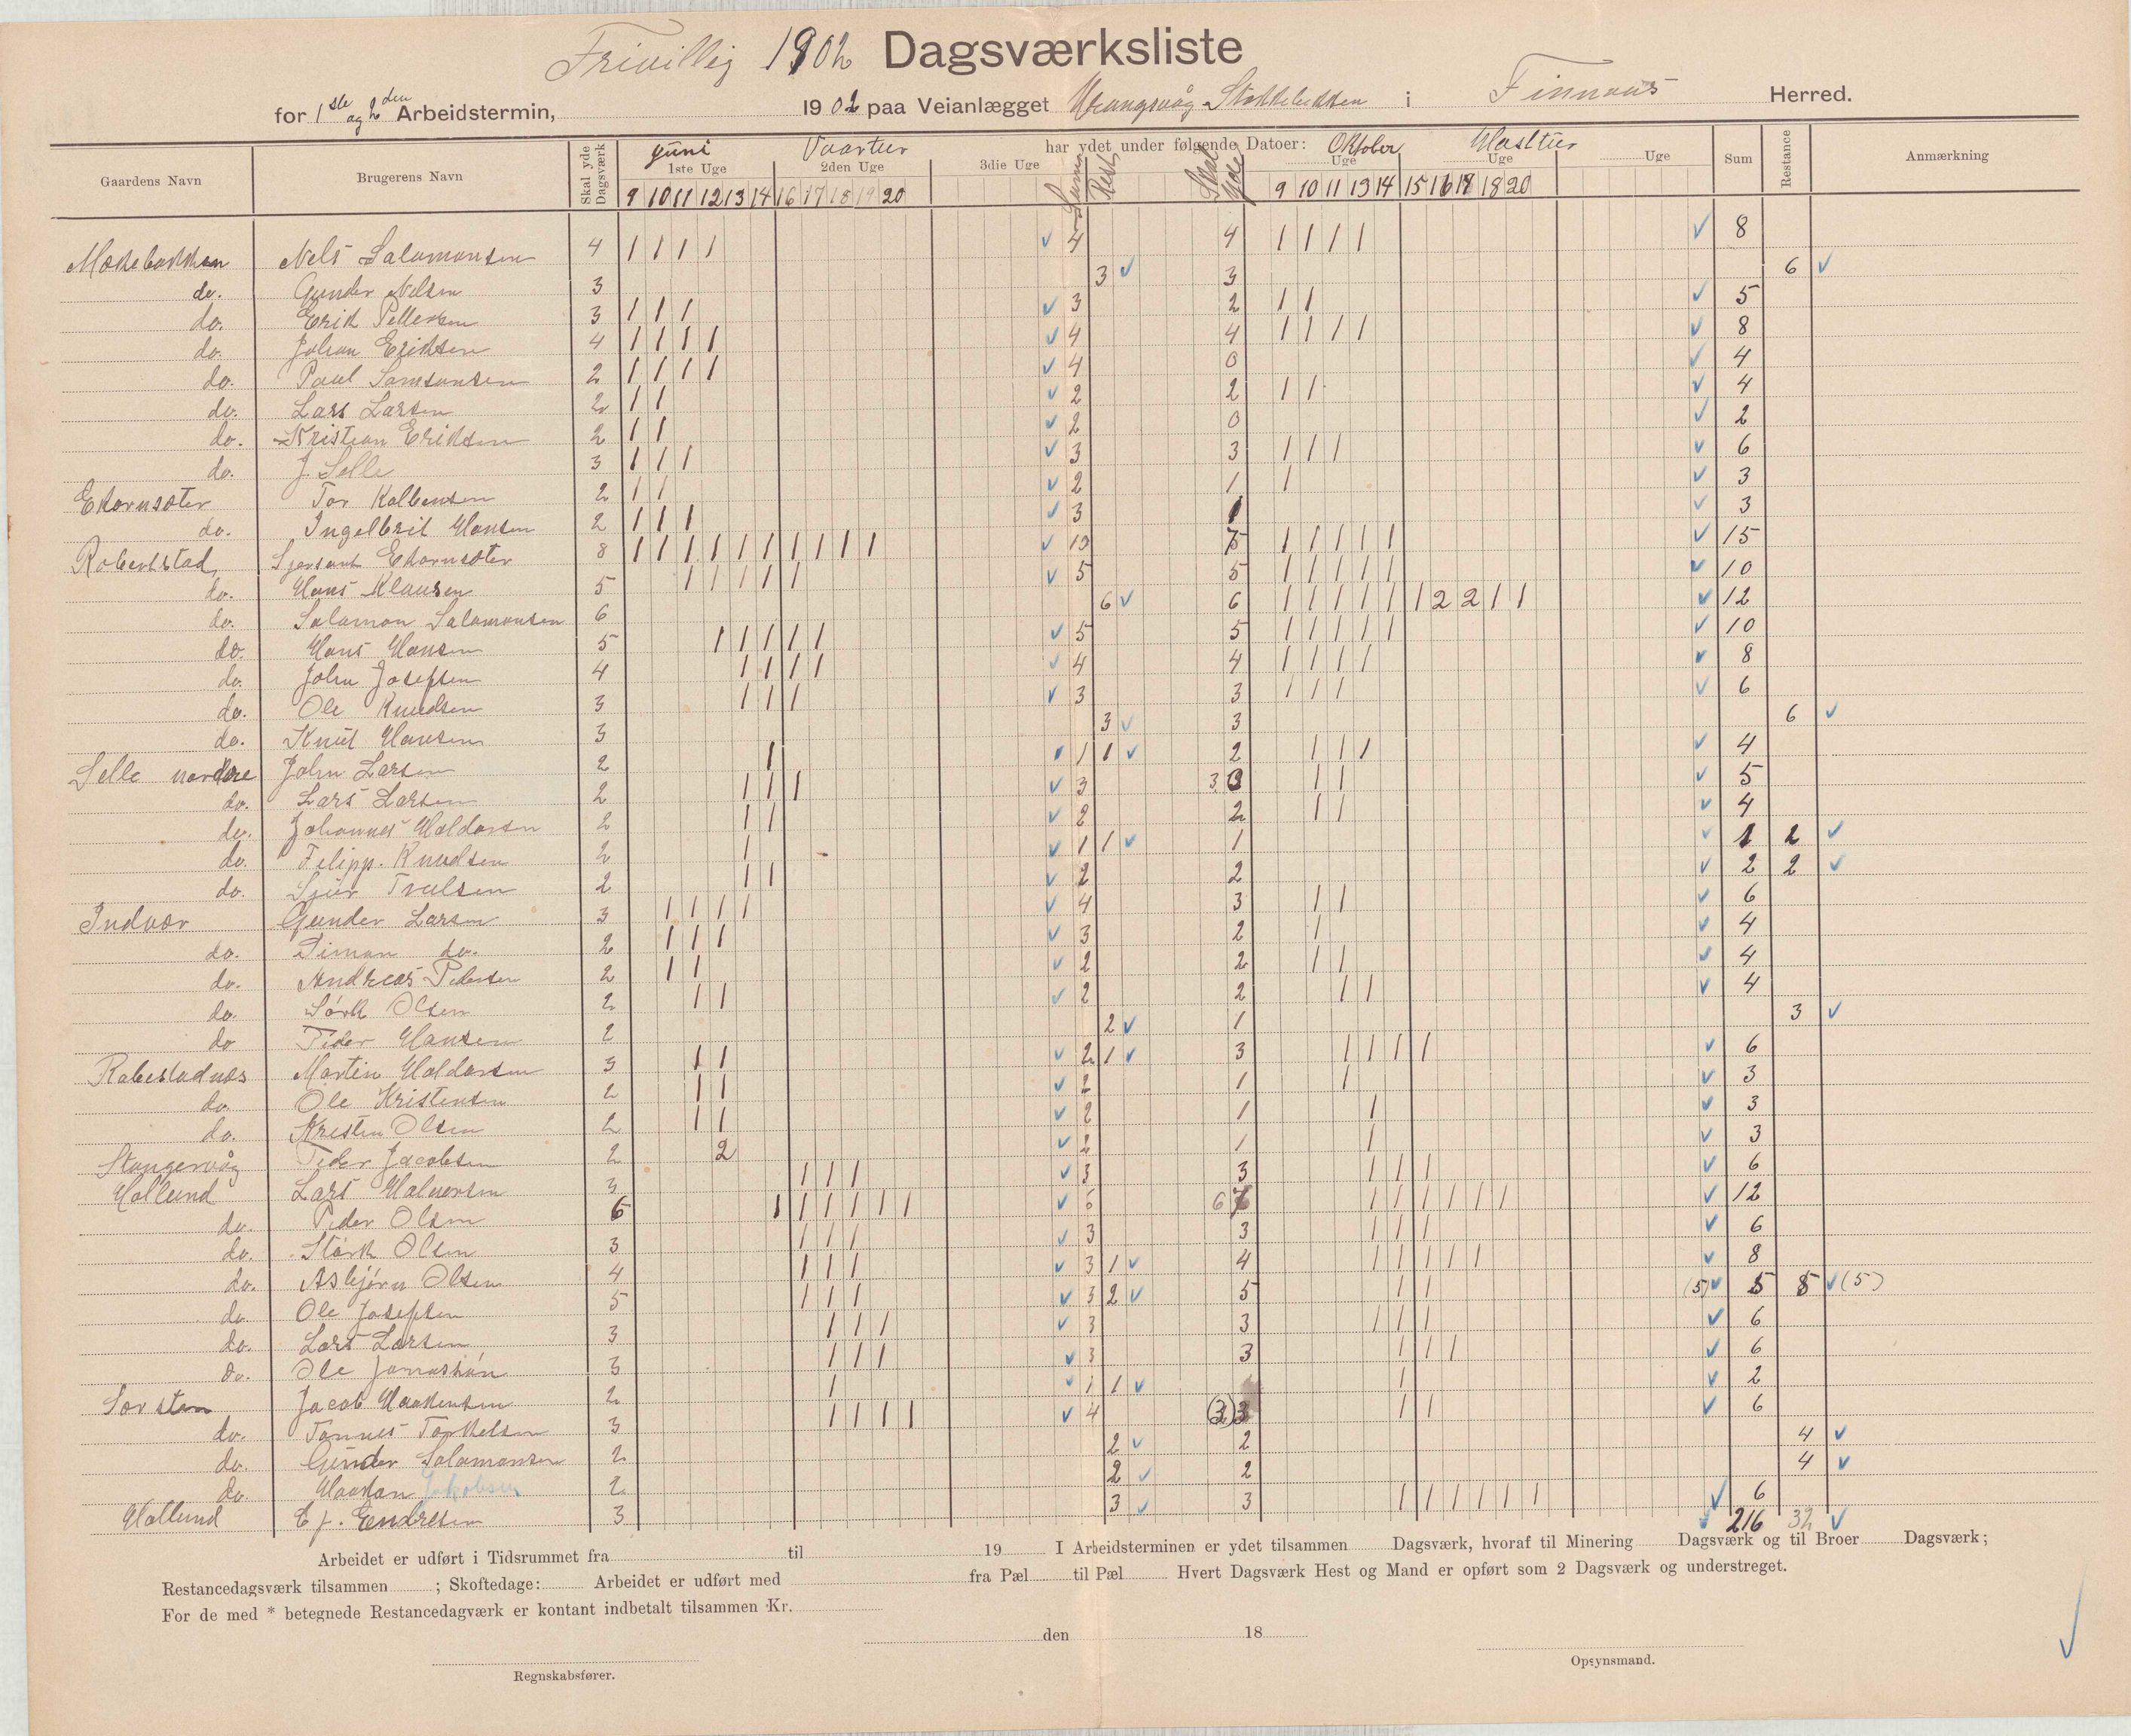 Frivillig 1902 Dagsværksliste
for 1ste og 2den Arbeidstermin, 1902 paa Veianlægget i Finnaas Herred.
Gaardens Navn Brugerens Navn Skal yde Dagsværk Juni Vaartur har ydet under følgende Datoer: Oktober Høsttur Sum Restance Anmærkning
1ste Uge 2den Uge 3die Uge Sum Rest Skal yde Uge Uge Uge
9 10 11 12 13 14 16 17 18 19 20 9 10 11 13 14 15 16 17 18 20
Mækebakken Nels Salamonsen 4 1 1 1 1 4 4 1 1 1 1 8
do. Gunder Nelsen 3 3 3 6
do. Erik Pettersen 3 1 1 1 3 2 1 1 5
do. Johan Eriksen 4 1 1 1 1 4 4 1 1 1 1 8
do. Paul Samsonsen 2 1 1 1 1 4 0 4
do. Lars Larsen 2 1 1 2 2 1 1 4
do. Kristian Eriksen 2 1 1 2 0 2
do. J. Selle 3 1 1 1 3 3 1 1 1 6
Ekornsæter Tor Kolbensen 2 1 1 2 1 1 3
do. Ingelbrit Hansen 2 1 1 1 3 1 3
Robertstad Sjersant Ekornsæter 8 1 1 1 1 1 1 1 1 1 1 10 5 1 1 1 1 1 15
do. Hans Klausen 5 1 1 1 1 1 5 5 1 1 1 1 1 10
do. Salamon Salamonsen 6 6 6 1 1 1 1 1 1 2 2 1 1 12
do. Hans Hansen 5 1 1 1 1 1 5 5 1 1 1 1 1 10
do. John Josefsen 4 1 1 1 1 4 4 1 1 1 1 8
do. Ole Knudsen 3 1 1 1 3 3 1 1 1 6
do. Knut Hansen 3 3 3 6
Selle nordre John Larsen 2 1 1 1 2 1 1 1 4
do. Lars Larsen 2 1 1 1 3 3 1 1 5
do. Johannes Haldorsen 2 1 1 2 2 1 1 4
do. Filipp. Knudsen 2 1 1 1 1 1 2
do. Sjur 2 1 1 2 2 2 2
Indvær Gunder Larsen 3 1 1 1 1 4 3 1 1 6
do. Simon do. 2 1 1 1 3 2 1 4
do. Andreas Pedersen 2 1 1 2 2 1 1 4
do. Størk Olsen 2 1 1 2 2 1 1 4
do Peder Hansen 2 2 1 3
Robestadnes Martin Haldorsen 3 1 1 2 1 3 1 1 1 1 6
do. Ole Kristensen 2 1 1 2 1 1 3
do. Kristen Olsen 2 1 1 2 1 1 3
Stangervåg Peder Jacobsen 2 2 2 1 1 3
Hollund Lars Halversen 3 1 1 1 3 3 1 1 1 6
do. Peder Olsen 6 1 1 1 1 1 1 6 6 1 1 1 1 1 1 12
do. Størk Olsen 3 1 1 1 3 3 1 1 1 6
do. Asbjørn Olsen 4 1 1 1 3 1 4 1 1 1 1 1 8
do. Ole Josefsen 5 1 1 1 3 2 5 1 1 (5) 5 5 (5)
do. Lars Larsen 3 1 1 1 3 3 1 1 1 6
do. Ole 3 1 1 1 3 3 1 1 1 6
Jacob Haakensen 2 1 1 1 1 2
do. Tønnes Torkelsen 3 1 1 1 1 4 (3) 3 1 1 6
do. Gunder Salamonsen 2 2 2 4
do Haakon Jakobsen 2 2 2 4
Hollund E J. Endresen 3 3 3 1 1 1 1 1 1 6
216 32
Arbeidet er udført i Tidsrummet fra til 19 I Arbeidsterminen er ydet tilsammen Dagsværk, hvoraf til Minering Dagsværk og til Broer Dagsværk;
Restancedagsværk tilsammen ; Skoftedage: Arbeidet er udført med fra Pæl til Pæl Hvert Dagsværk Hest og Mand er opført som 2 Dagsværk og understreget.
For de med * betegnede Restancedagværk er kontant indbetalt tilsammen Kr.
den 18
Regnskabsfører. Opsynsmand.